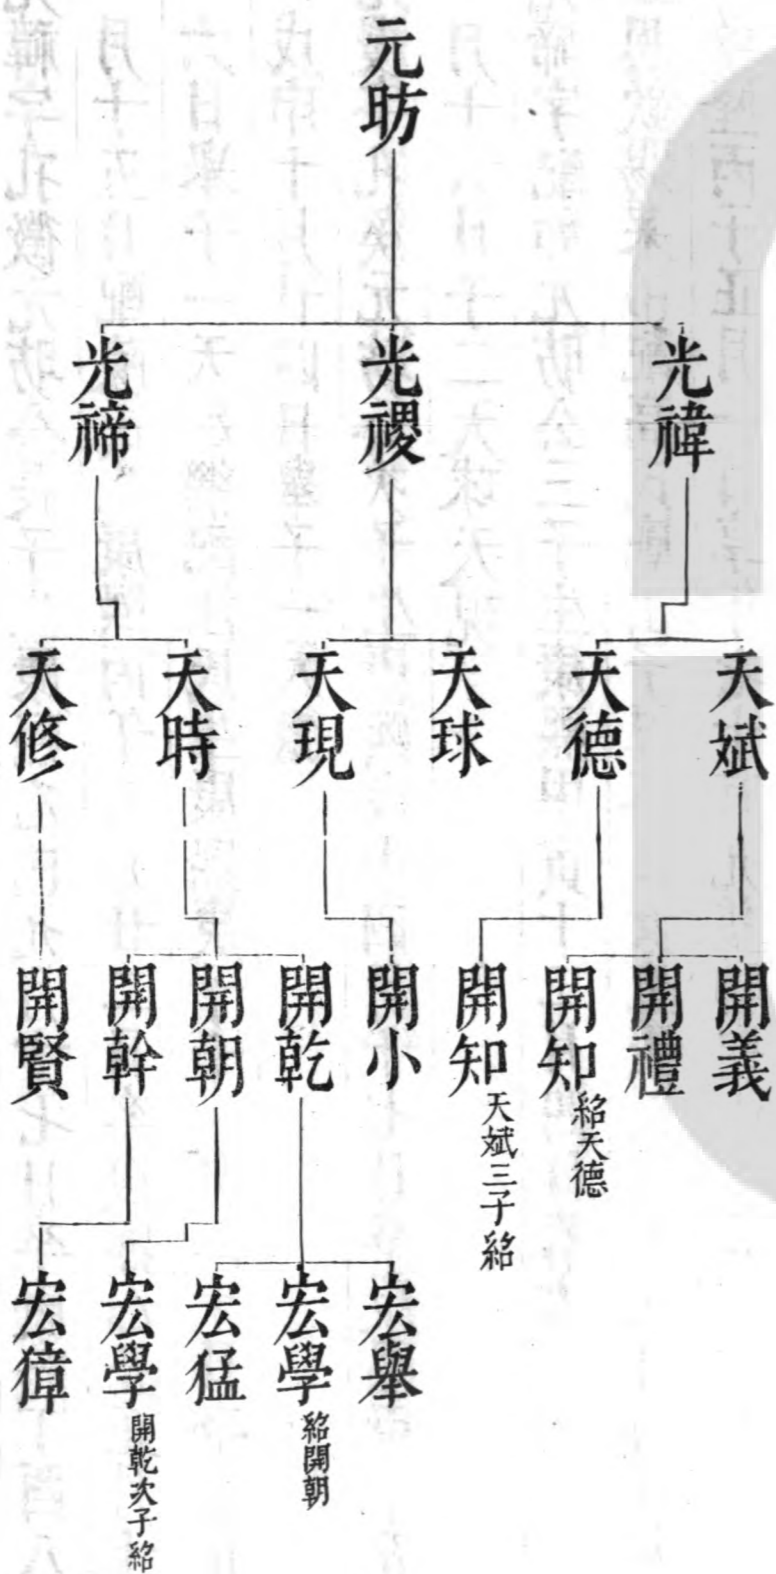 元昉
光禕
光禝
光禘
天斌
天德
天球
天現
天時
天修
開義
開禮
開知 紹天德
開知 天斌三子紹
開小
開乾
開朝
開幹
開賢
宏舉
宏學 紹開朝
宏猛
宏學 開乾次子紹
宏獐